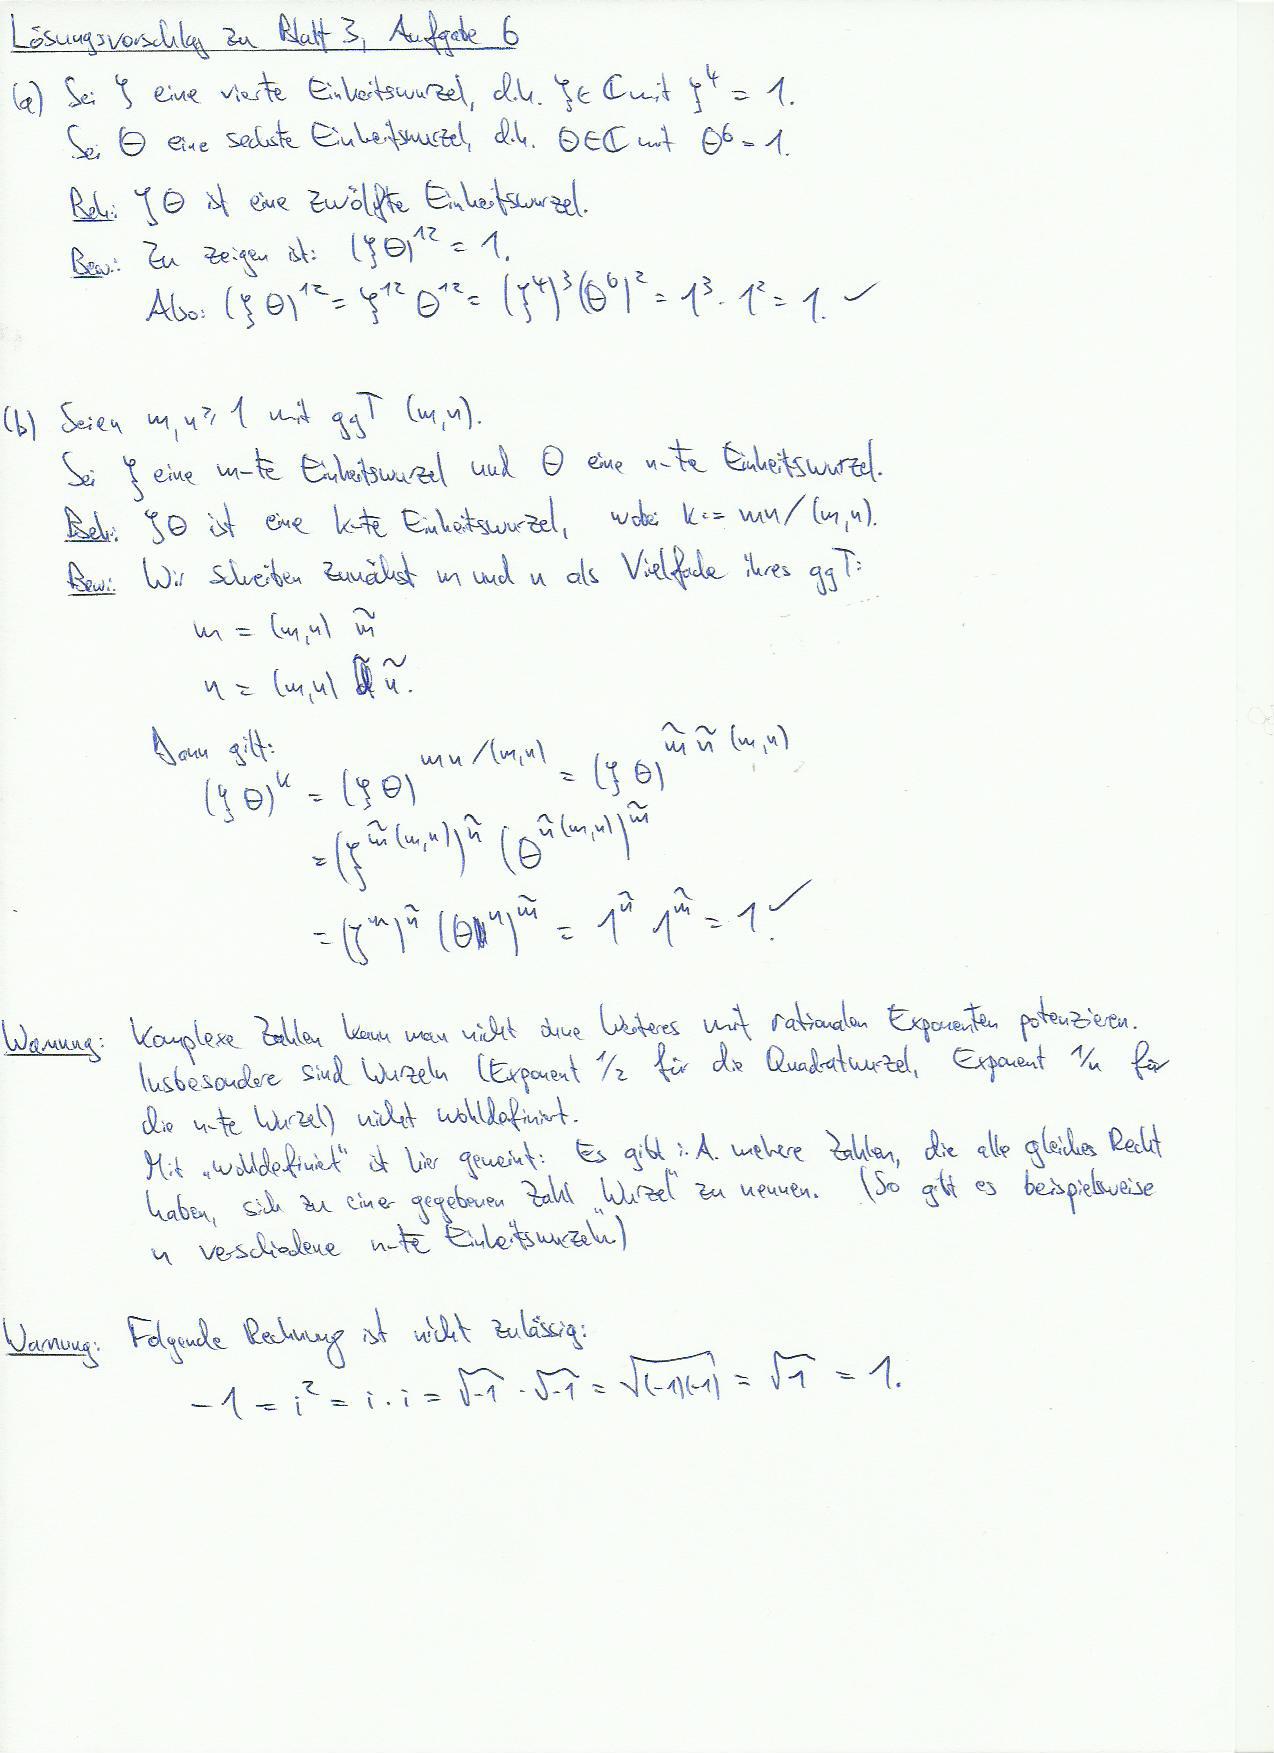 Lösungsvorschlag zu Blatt 3, Aufgabe 6
(a) Sei ζ eine vierte Einheitswurzel, d.h. ζ ∈ ℂ mit ζ⁴ = 1.
Sei Θ eine sechste Einheitswurzel, d.h. Θ ∈ ℂ mit Θ⁶ = 1.
Beh.: ζΘ ist eine zwölfte Einheitswurzel.
Bew.: Zu zeigen ist: (ζΘ)¹² = 1.
Also: (ζΘ)¹² = ζ¹² Θ¹² = (ζ⁴)³ (Θ⁶)² = 1³ · 1² = 1. ✓
(b) Seien m, n ≥ 1 mit ggT (m,n).
Sei ζ eine m-te Einheitswurzel und Θ eine n-te Einheitswurzel.
Beh.: ζΘ ist eine k-te Einheitswurzel, wobei k := mn/(m,n).
Bew.: Wir schreiben zunächst m und n als Vielfache ihres ggT:
m = (m,n) m̃
n = (m,n) ñ.
Dann gilt:
(ζΘ)^k = (ζΘ)^{mn/(m,n)} = (ζΘ)^{m̃ ñ (m,n)}
= (ζ^{m̃(m,n)})^ñ (Θ^{ñ(m,n)})^m̃
= (ζ^m)^ñ (Θ^n)^m̃ = 1^ñ 1^m̃ = 1. ✓
Warnung: Komplexe Zahlen kann man nicht ohne Weiteres mit rationalen Exponenten potenzieren.
Insbesondere sind Wurzeln (Exponent 1/2 für die Quadratwurzel, Exponent 1/n für
die n-te Wurzel) nicht wohldefiniert.
Mit „wohldefiniert" ist hier gemeint: Es gibt i. A. mehere Zahlen, die alle gleiches Recht
haben, sich zu einer gegebenen Zahl „Wurzel" zu nennen. (So gibt es beispielsweise
n verschiedene n-te Einheitswurzeln.)
Warnung: Folgende Rechnung ist nicht zulässig:
-1 = i² = i · i = √-1 · √-1 = √(-1)(-1) = √1 = 1.